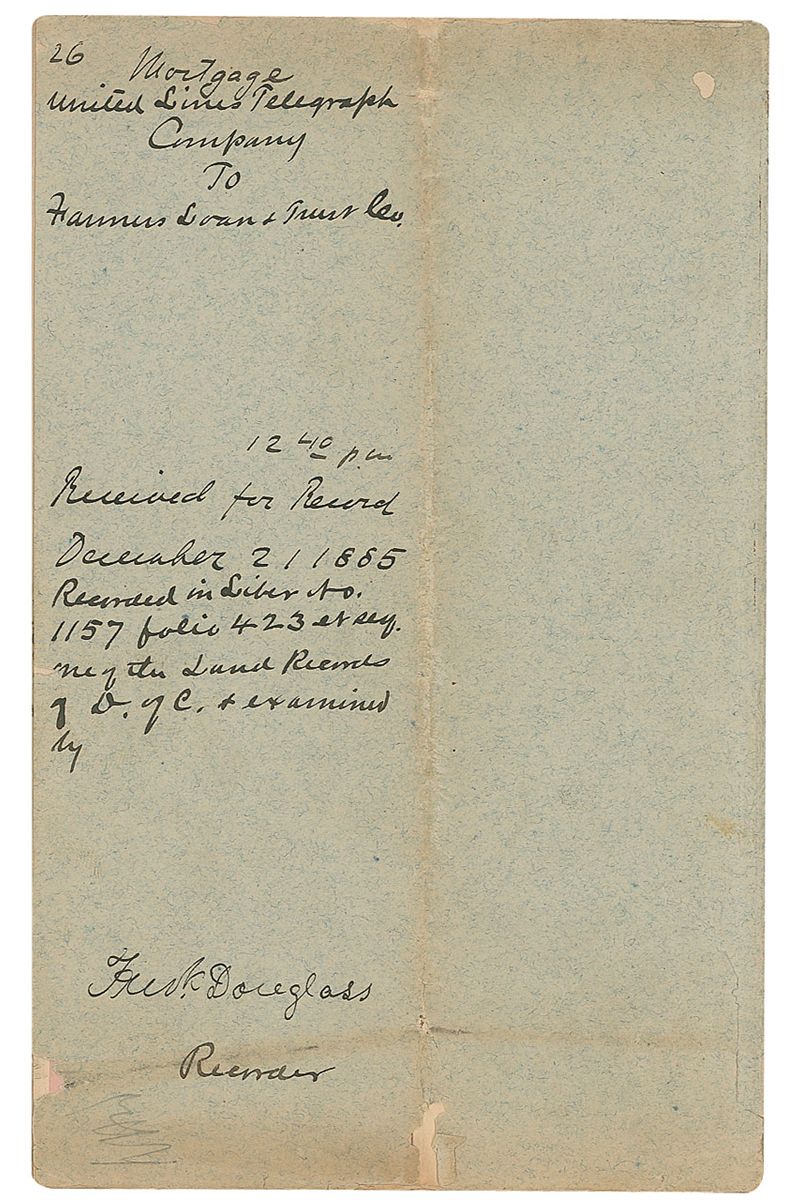 26
Mortgage
United Lines Telegraph
Company
To
Farmers Loan & Trust Co.
12 40 p m
Received for Record
December 21 1885
Recorded in Liber No.
1157 folio 423 et seq.
one of the Land Records
of D. of C. & examined
by
Fredk. Douglass
Recorder